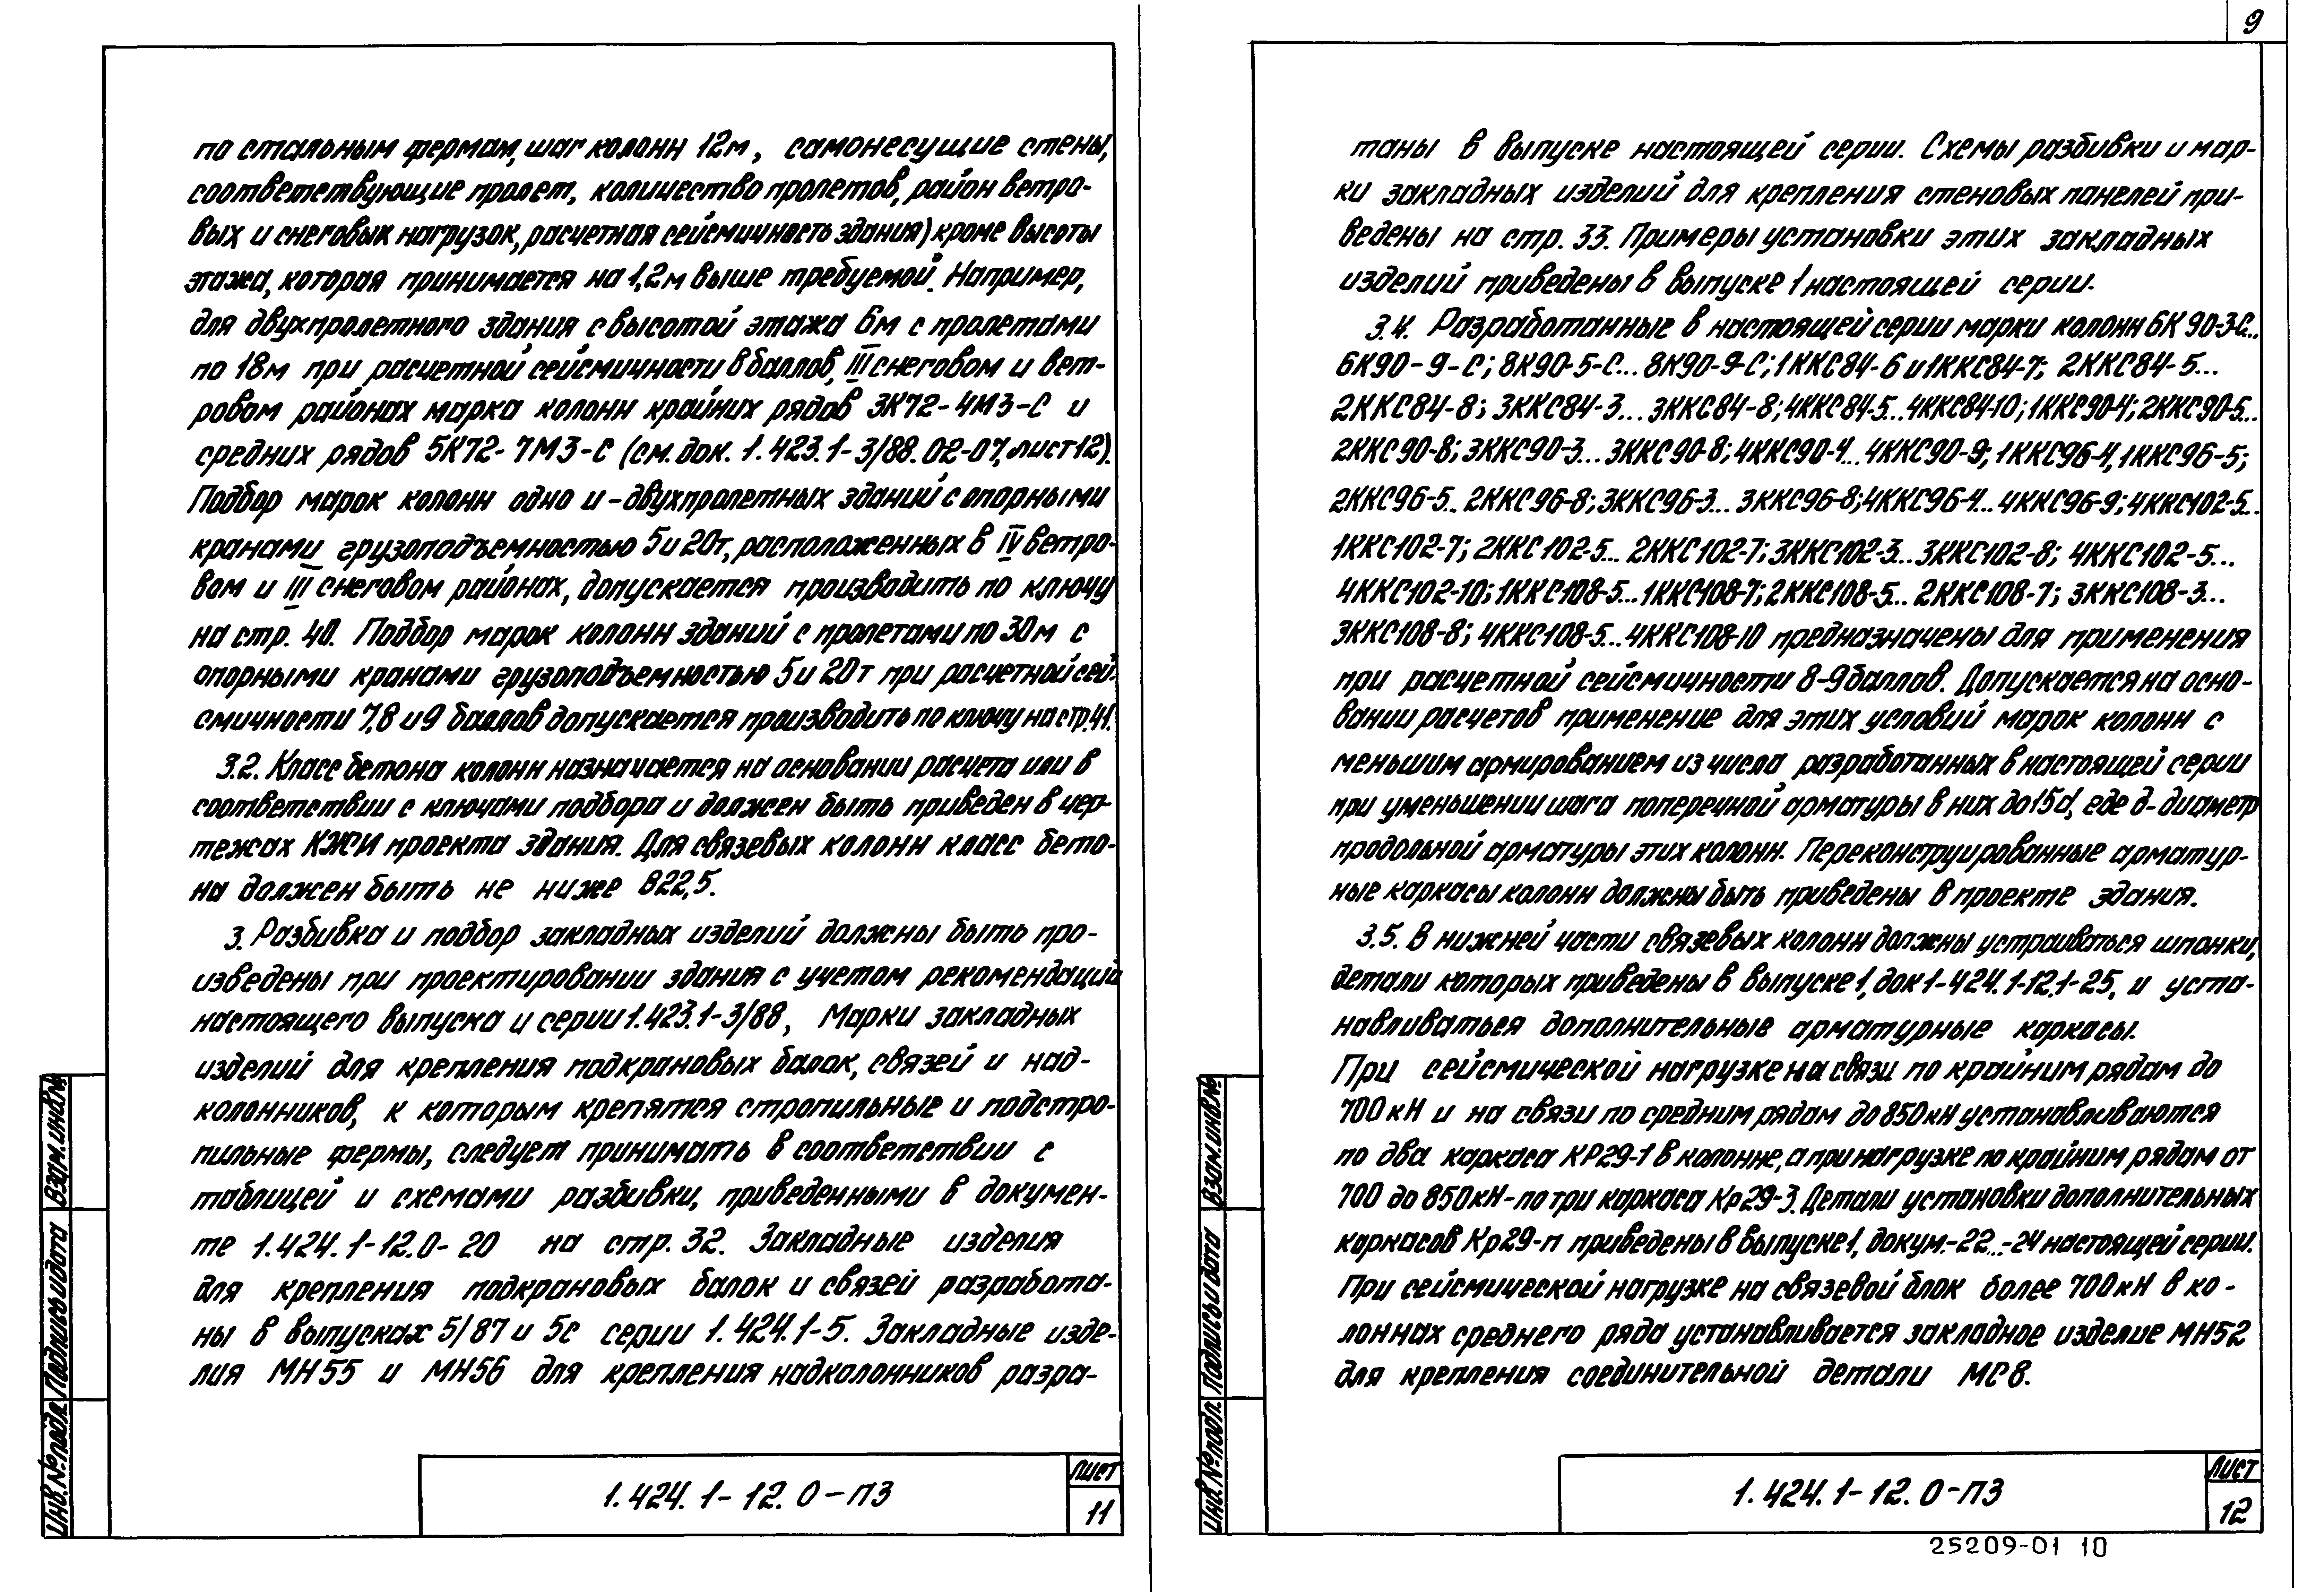 9
по стальным фермам, шаг колонн 12м, самонесущие стены,
соответствующие пролет, количество пролетов, район ветро-
вых и снеговых нагрузок, расчетная сейсмичность здания) кроме высоты
этажа, которая принимается на 1,2м выше требуемой. Например,
для двухпролетного здания с высотой этажа 6м с пролетами
по 18м при расчетной сейсмичности 8 баллов, III снеговом и вет-
ровом районах марка колонн крайних рядов 3К72-4М3-С и
средних рядов 5К72-7М3-С (см. док. 1.423.1-3/88.02-07, лист 12).
Подбор марок колонн одно и-двухпролетных зданий с опорными
кранами грузоподъемностью 5 и 20т, расположенных в IV ветро-
вом и III снеговом районах, допускается производить по ключу
на стр. 40. Подбор марок колонн зданий с пролетами по 30м с
опорными кранами грузоподъемностью 5 и 20т при расчетной сей-
смичности 7,8 и 9 баллов допускается производить по ключу на стр. 41.
3.2. Класс бетона колонн назначается на основании расчета или в
соответствии с ключами подбора и должен быть приведен в чер-
тежах КЖИ проекта здания. Для связевых колонн класс бето-
на должен быть не ниже В22,5.
3. Разбивка и подбор закладных изделий должны быть про-
изведены при проектировании здания с учетом рекомендаций
настоящего выпуска и серии 1.423.1-3/88, Марки закладных
изделий для крепления подкрановых балок, связей и над-
колонников, к которым крепятся стропильные и подстро-
пильные фермы, следует принимать в соответствии с
таблицей и схемами разбивки, приведенными в докумен-
те 1.424.1-12.0-20 на стр. 32. Закладные изделия
для крепления подкрановых балок и связей разработа-
ны в выпусках 5/87 и 5с серии 1.424.1-5. Закладные изде-
лия МН55 и МН56 для крепления надколонников разра-
Взам.инв.№
Подпись и дата
Инв.№ подл.
1.424.1-12.0-ПЗ
Лист
11
таны в выпуске настоящей серии. Схемы разбивки и мар-
ки закладных изделий для крепления стеновых панелей при-
ведены на стр. 33. Примеры установки этих закладных
изделий приведены в выпуске 1 настоящей серии.
3.4. Разработанные в настоящей серии марки колонн 6К90-3-С...
6К90-9-С; 8К90-5-С... 8К90-9-С; 1ККС84-6 и 1ККС84-7; 2ККС84-5...
2ККС84-8; 3ККС84-3... 3ККС84-8; 4ККС84-5... 4ККС84-10; 1ККС90-4; 2ККС90-5...
2ККС90-8; 3ККС90-3... 3ККС90-8; 4ККС90-4... 4ККС90-9; 1ККС96-4, 1ККС96-5;
2ККС96-5.. 2ККС96-8; 3ККС96-3... 3ККС96-8; 4ККС96-4... 4ККС96-9; 4ККС102-5...
1ККС102-7; 2ККС102-5... 2ККС102-7; 3ККС102-3... 3ККС102-8; 4ККС102-5...
4ККС102-10; 1ККС108-5... 1ККС108-7; 2ККС108-5... 2ККС108-7; 3ККС108-3...
3ККС108-8; 4ККС108-5... 4ККС108-10 предназначены для применения
при расчетной сейсмичности 8-9 баллов. Допускается на осно-
вании расчетов применение для этих условий марок колонн с
меньшим армированием из числа разработанных в настоящей серии
при уменьшении шага поперечной арматуры в них до 15d, где d-диаметр
продольной арматуры этих колонн. Переконструированные арматур-
ные каркасы колонн должны быть приведены в проекте здания.
3.5. В нижней части связевых колонн должны устраиваться шпонки,
детали которых приведены в выпуске 1, док 1-424.1-12.1-25, и уста-
навливаться дополнительные арматурные каркасы.
При сейсмической нагрузке на связи по крайним рядам до
700 кН и на связи по средним рядам до 850 кН устанавливаются
по два каркаса КР29-1 в колонне, а при нагрузке по крайним рядам от
700 до 850кН - по три каркаса Кр29-3. Детали установки дополнительных
каркасов Кр29-п приведены в выпуске 1, докум.-22...-24 настоящей серии.
При сейсмической нагрузке на связевой блок более 700кН в ко-
лоннах среднего ряда устанавливается закладное изделие МН52
для крепления соединительной детали МС8.
Взам.инв.№
Подпись и дата
Инв.№ подл.
1.424.1-12.0-ПЗ
Лист
12
25209-01 10